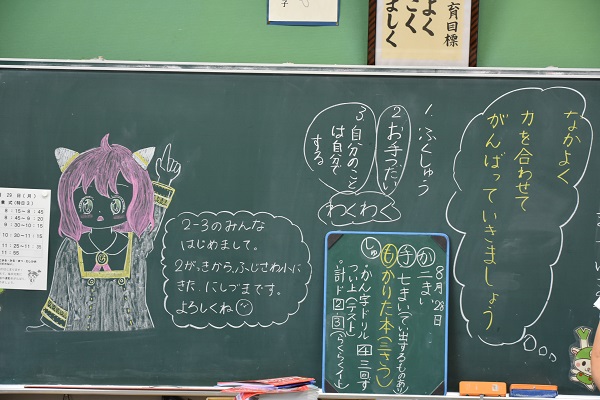 育目標
よく
こく
ましく
なかよく
力を合わせて
がんばっていきましょう
1. ふくしゅう
2 お手つだい
3 自分のこと
は自分で
する
わくわく
2-3のみんな
はじめまして。
2がっきから、ふじさわ小に
きた、にしづまです。
よろしくね
8月28日
か 二きい
手 七まい(てい出するものあり)
も かりた本(三さつ)
しゅ ・かん字ドリル 4 三回ずつ
い上(テスト)
・計ド 2 3 (らくらくイ上)
29 日(月)
8:15~8:45
8:45~9:20
9:30~10:15
10:30~11:15
11:25~11:55
11:55